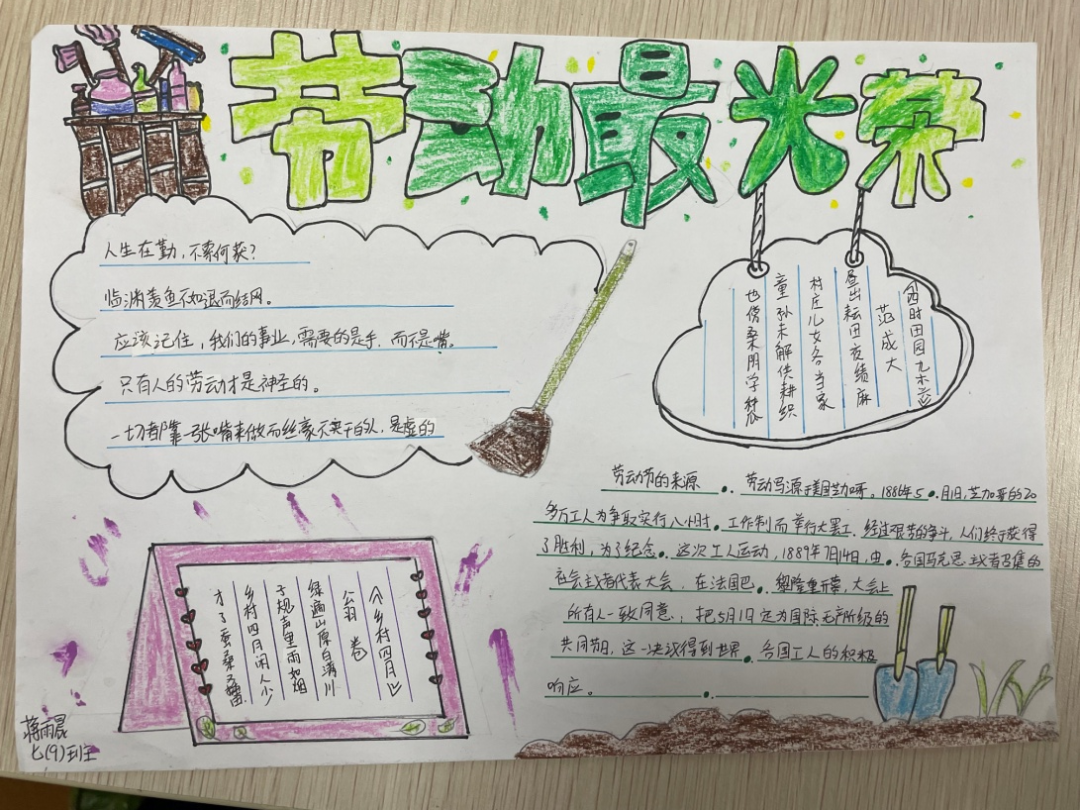 劳动最光荣
人生在勤，不索何获？
临渊羡鱼不如退而结网。
应该记住，我们的事业，需要的是手，而不是嘴。
只有人的劳动才是神圣的。
一切都靠一张嘴来做而丝毫不实干的人，是虚的
《四时田园九木》
范成大
昼出耘田夜绩麻
村庄儿女各当家
童孙未解供耕织
也傍桑阴学种瓜
劳动节的来源
劳动号源于美国芝加哥。1886年5月1日，芝加哥的20
多万工人为争取实行八小时工作制而举行大罢工，经过艰苦的争斗，人们终于获得
了胜利，为了纪念这次工人运动，1889年7月14日，由各国马克思主义者召集的
社会主义者代表大会，在法国巴黎隆重开幕，大会上
所有人一致同意：把5月1日定为国际无产阶级的
共同节日，这一决议得到世界各国工人的积极
响应。
《乡村四月》
公羽 卷
绿遍山原白满川
子规声里雨如烟
乡村四月闲人少
才了蚕桑又插田
蒋雨晨
七(9)班